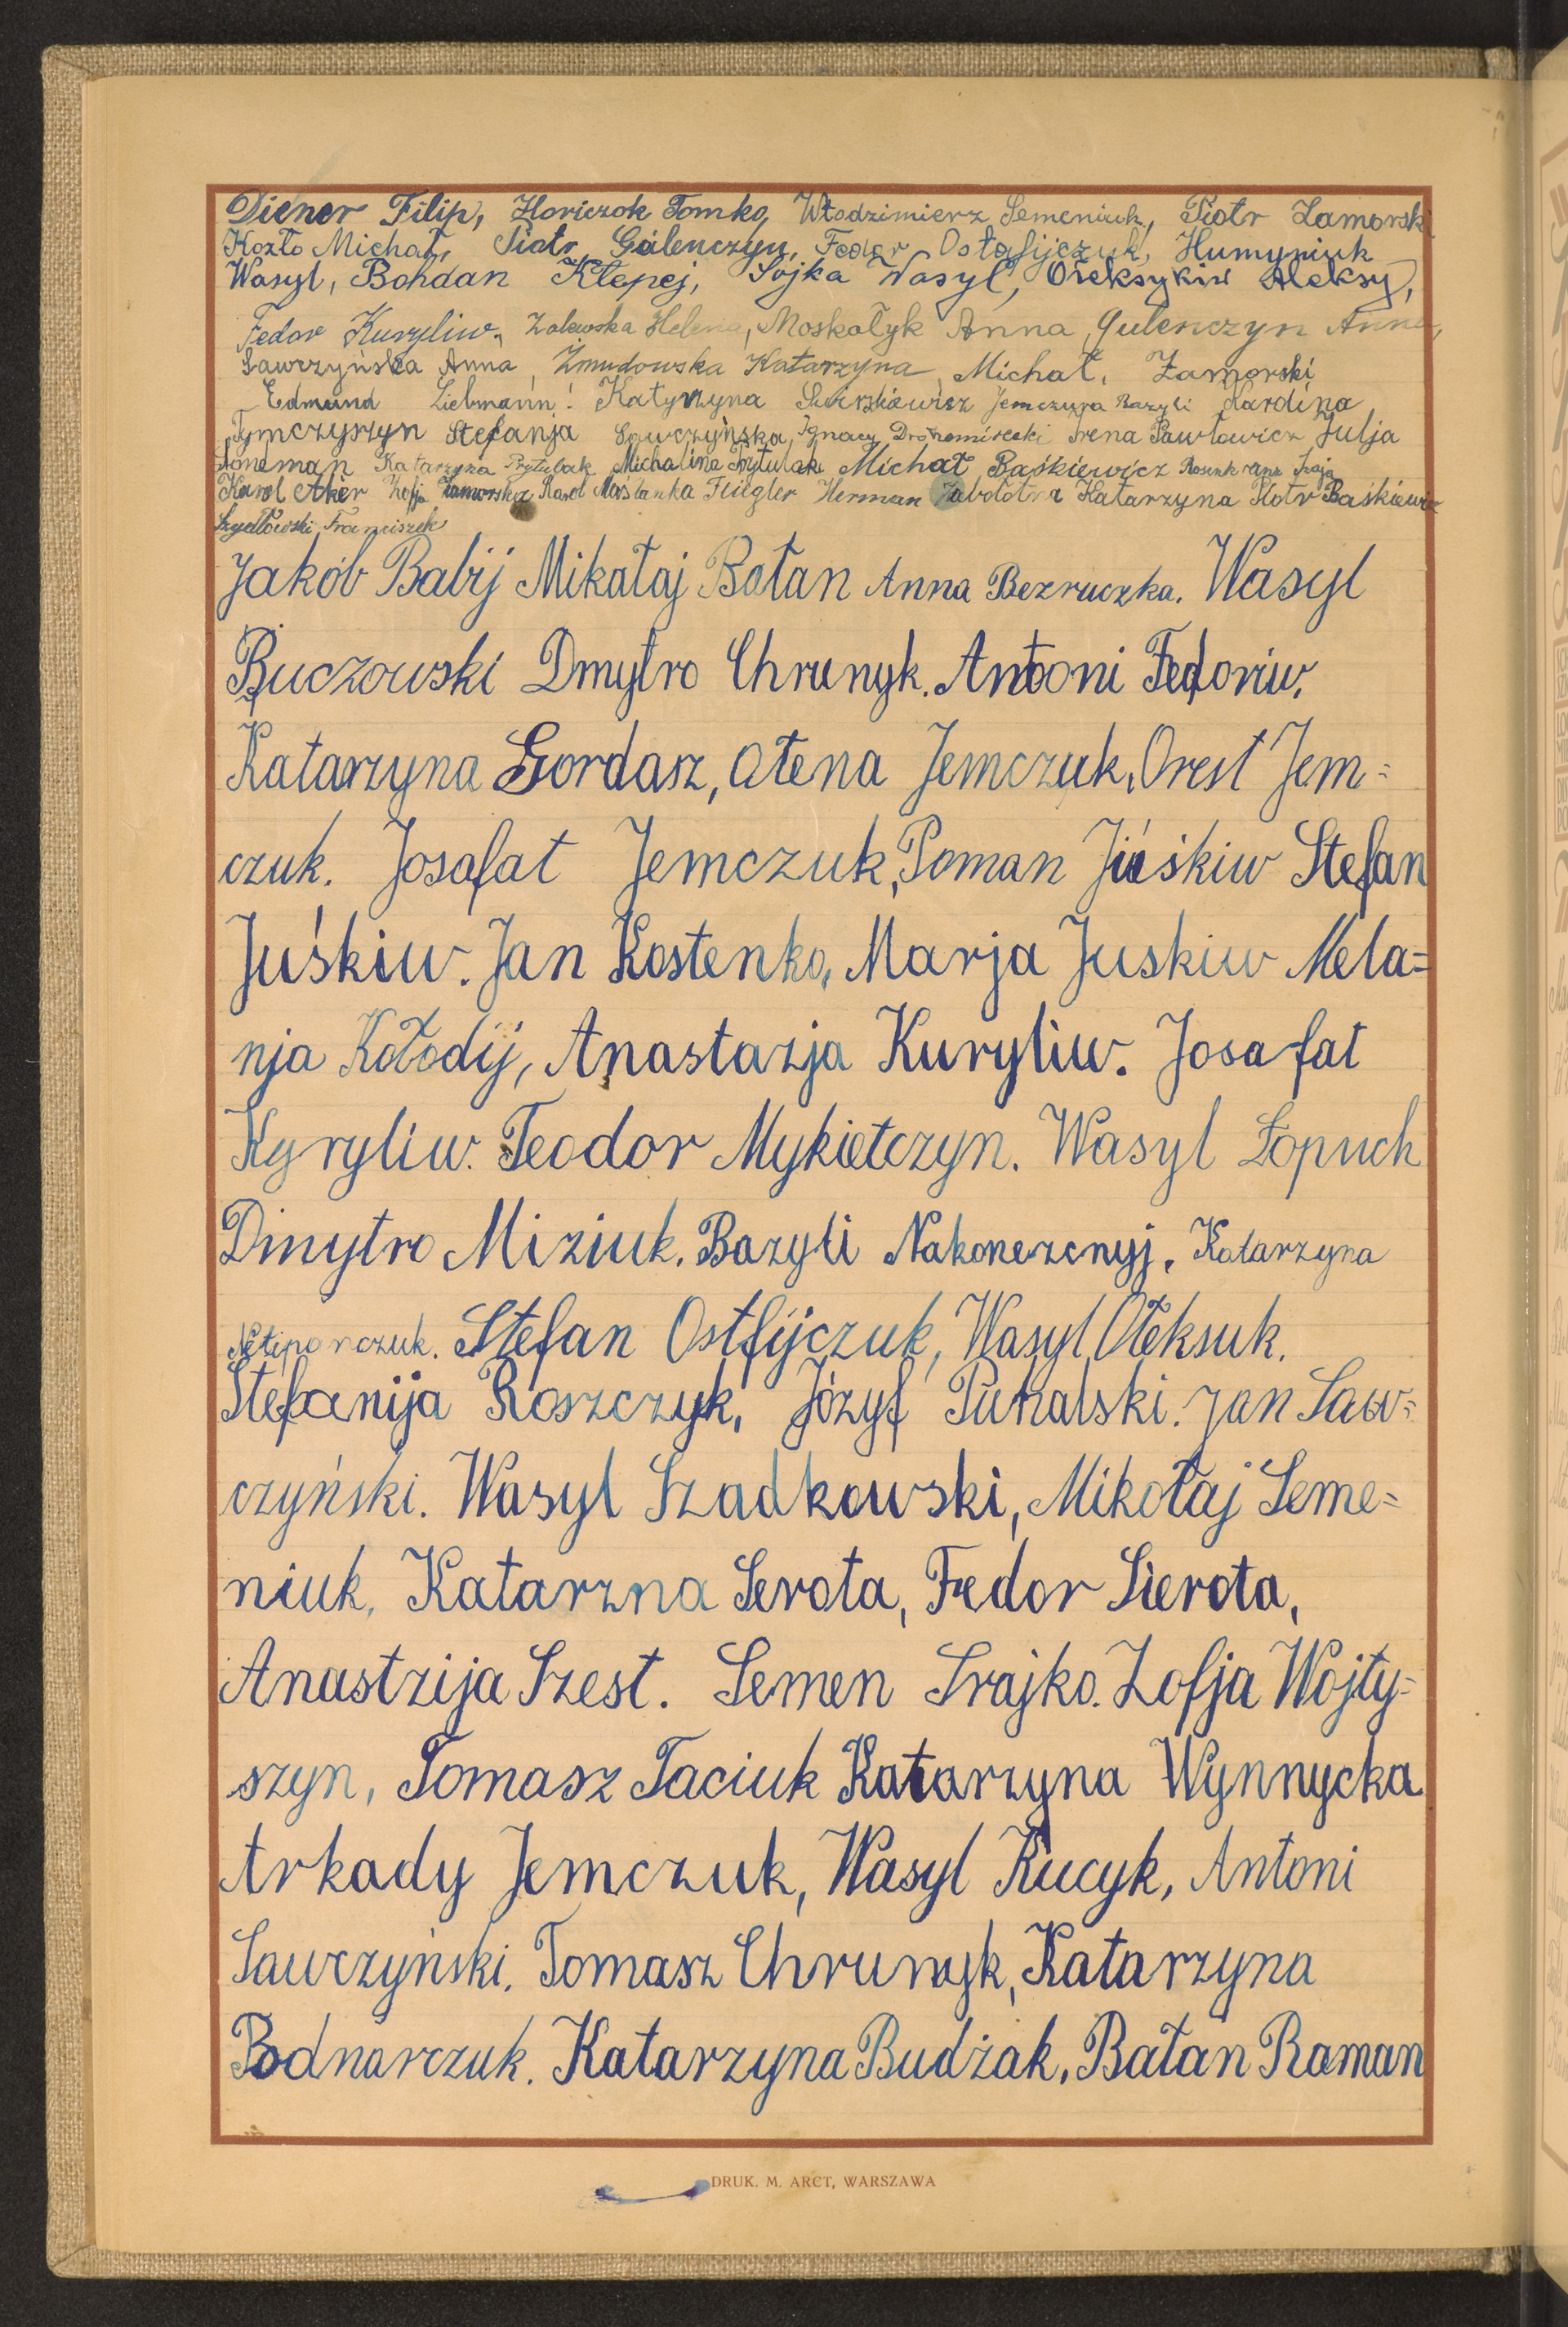 Diener Filip, Horiczok Tomko, Włodzimierz Semeniuk, Piotr Zamorski
Kozło Michał, Piotr Galenczyn, Fedor Ostafijczuk, Humyniuk
Wasyl, Bohdan Kłepej, Sojka Wasyl, Ołeksykiw Aleksy,
Fedor Kuryliw, Zalewska Helena, Moskałyk Anna, Gulenczyn Anna,
Sawczyńska Anna, Żmudowska Katarzyna, Michał, Zamorski
Edmund Liebmann! Katyrzyna Jemczura Bazyli Kardyna
Tymczyszyn Stefanja Sawczyńska, Ignacy Irena Pawłowicz Julja
Katarzyna Prytulak Michalina Prytulak Michał Baśkiewicz
Karol Aker Zofja Zamorska Karol Maślanka Fliegler Herman Zabołotna Katarzyna Piotr Baśkiewicz
Szydłowski Franciszek
Jakób Babij Mikałaj Bałan Anna Bezruczka. Wasyl
Buczowski Dmytro Chrunyk. Antoni Fedoriw.
Katarzyna Gordasz, Ołena Jemczuk, Orest Jem=
czuk. Josafat Jemczuk, Poman Juśkiw Stefan
Juśkiw. Jan Kostenko, Marja Juskiw Mela=
nja Kołodij, Anastazja Kuryliw. Josafat
Kyryliw. Teodor Mykietczyn. Wasyl Łopuch
Dmytro Miziuk. Bazyli Nakonezcnyj. Katarzyna
Netiporczuk. Stefan Ostfijczuk, Wasyl Ołeksuk.
Stefanija Roszczyk, Józyf Puhalski. Jan Saw=
czyński. Wasyl Szadkowski, Mikołaj Seme=
niuk, Katarzna Serota, Fedor Sierota,
Anastzija Szest. Semen Srajko. Zofja Wojty=
szyn, Tomasz Taciuk Katarzyna Wynnycka
Arkady Jemczuk, Wasyl Kucyk, Antoni
Sawczyński. Tomasz Chrunyk, Katarzyna
Bodnarczuk. Katarzyna Budżak, Bałan Roman
DRUK. M. ARCT, WARSZAWA